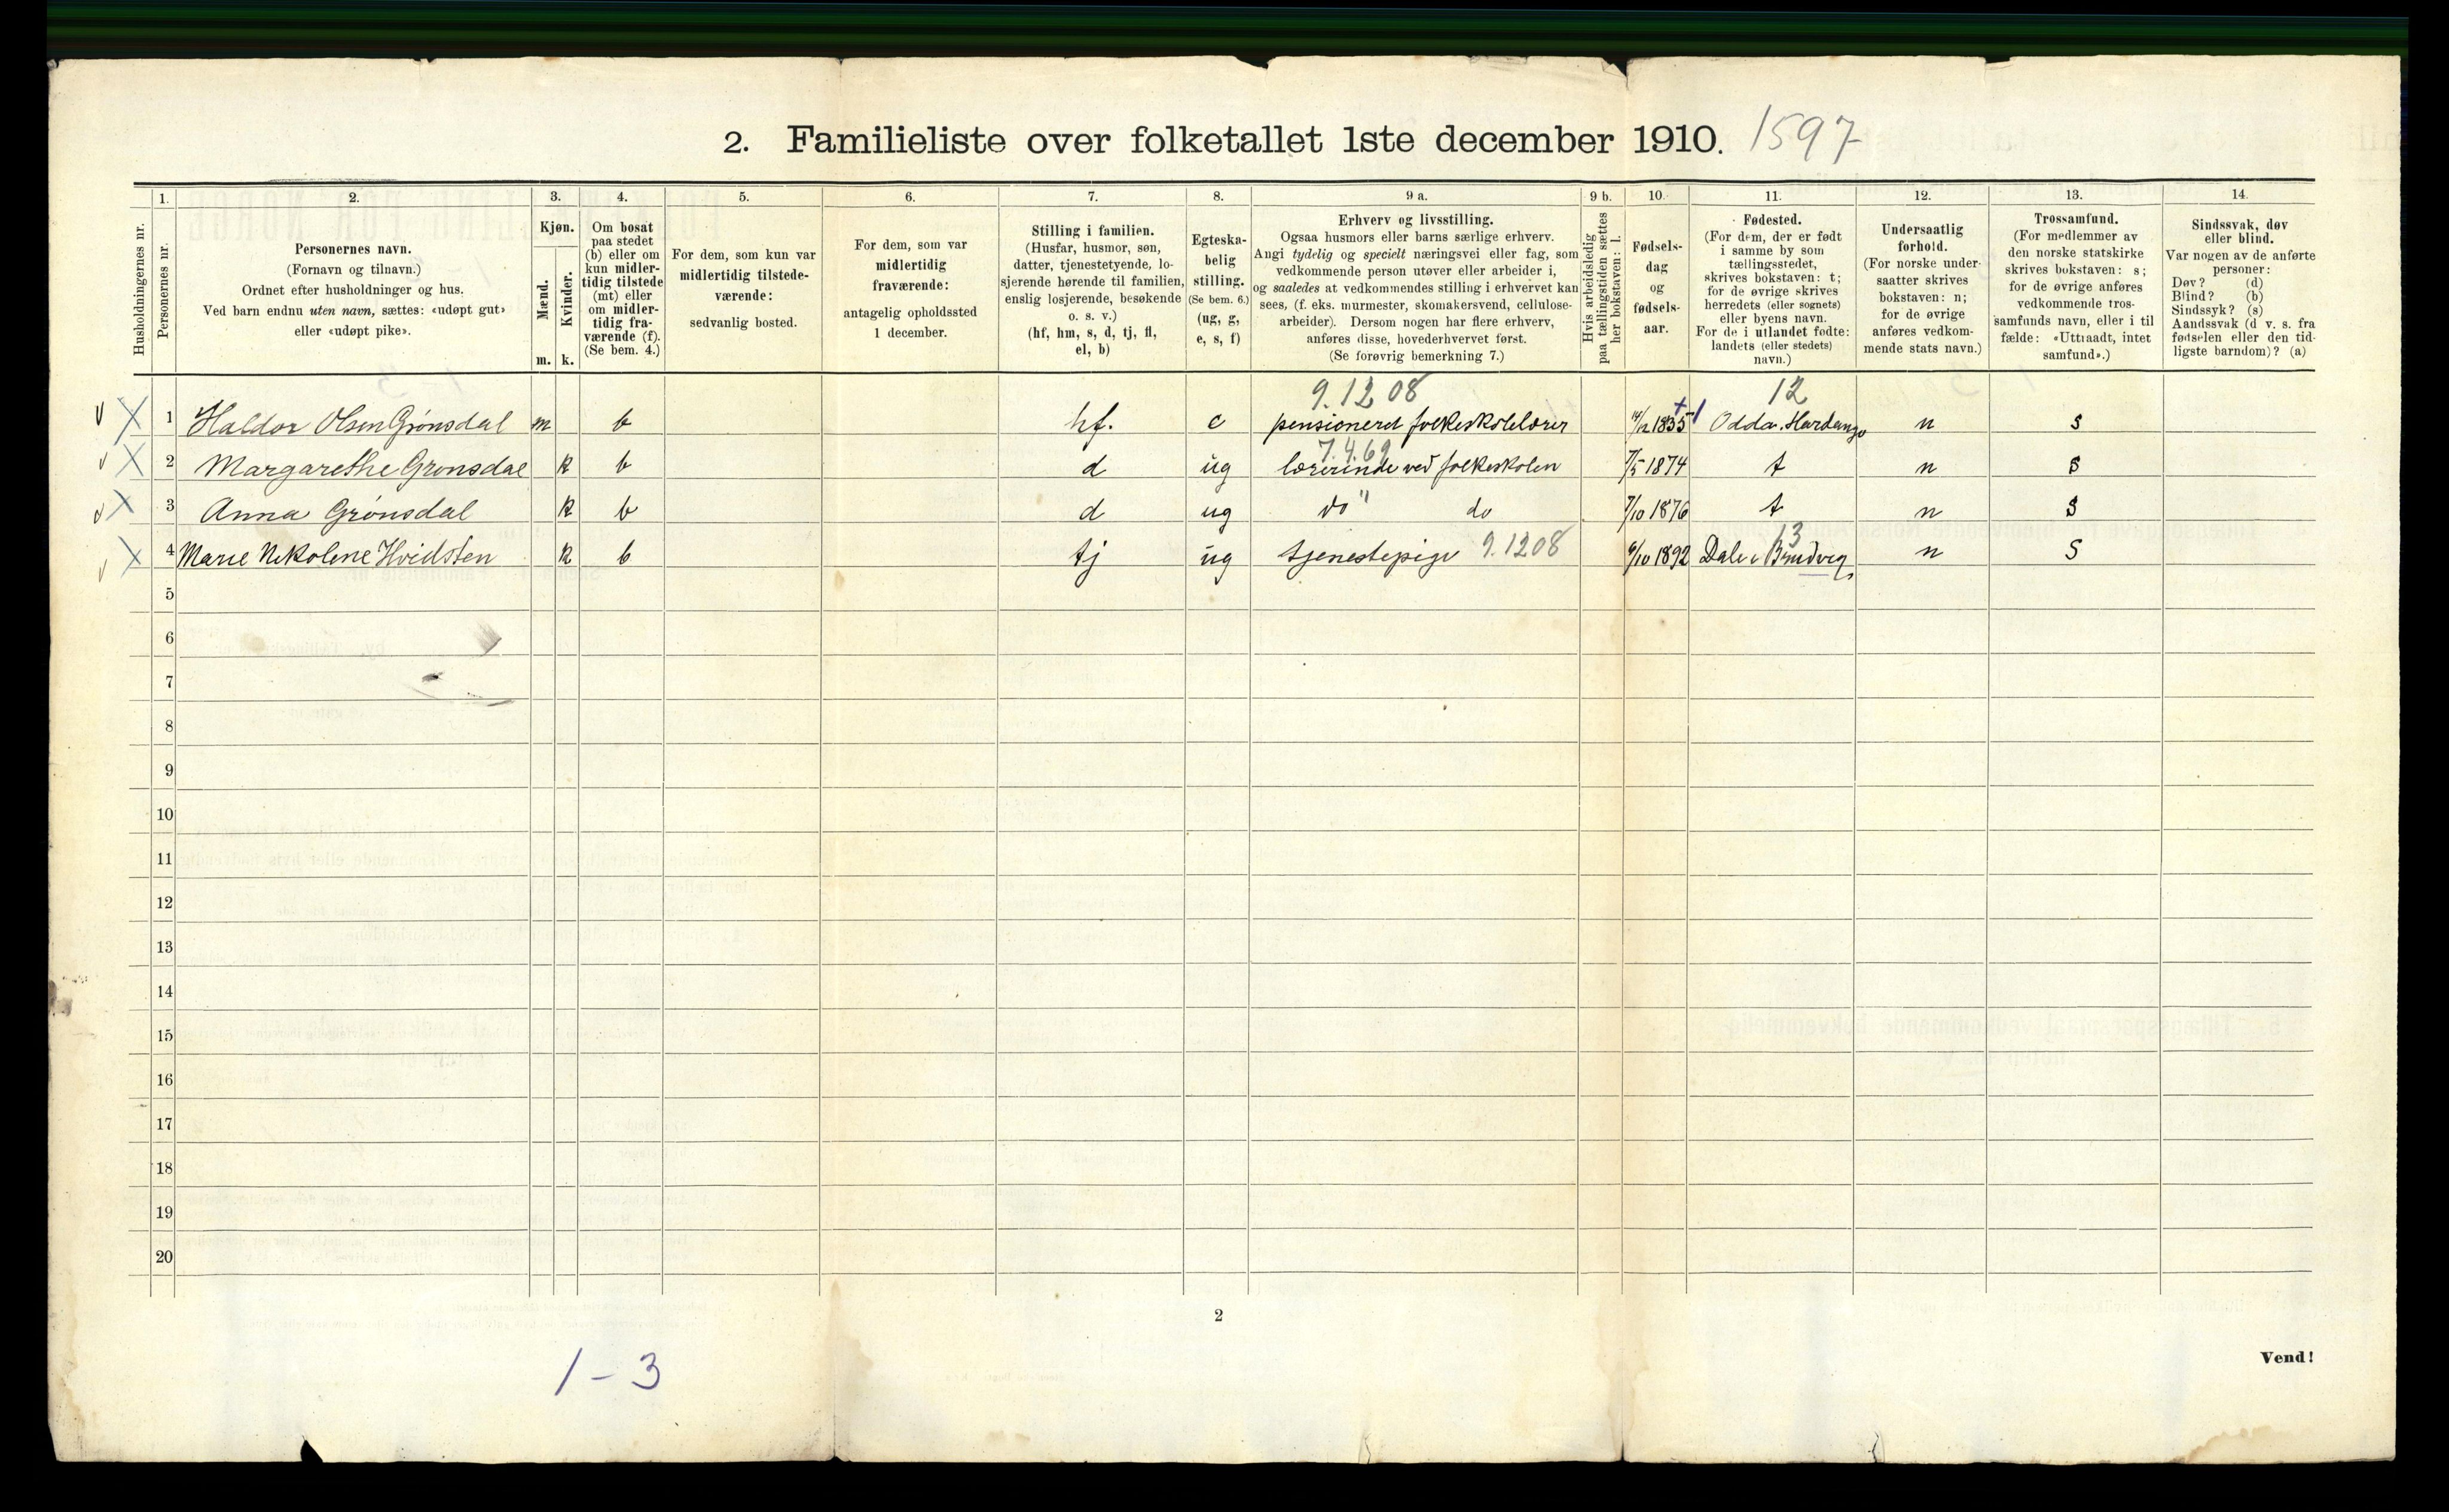 2. Familieliste over folketallet 1ste december 1910. 1597
Husholdningernes nr.
1.
Personernes nr.
2.
Personernes navn.
(Fornavn og tilnavn.)
Ordnet efter husholdninger og hus.
Ved barn endnu uten navn, sættes: «udøpt gut»
eller «udøpt pike».
3.
Kjøn.
Mænd.
Kvinder.
m. k.
4.
Om bosat
paa stedet
(b) eller om
kun midler-
tidig tilstede
(mt) eller
om midler-
tidig fra-
værende (f).
(Se bem. 4.)
5.
For dem, som kun var
midlertidig tilstede-
værende:
sedvanlig bosted.
6.
For dem, som var
midlertidig
fraværende:
antagelig opholdssted
1 december.
7.
Stilling i familien.
(Husfar, husmor, søn,
datter, tjenestetyende, lo-
sjerende hørende til familien,
enslig losjerende, besøkende
o. s. v.)
(hf, hm, s, d, tj, fl,
el, b)
8.
Egteska-
belig
stilling.
(Se bem. 6.)
(ug, g,
e, s, f)
9 a.
Erhverv og livsstilling.
Ogsaa husmors eller barns særlige erhverv.
Angi tydelig og specielt næringsvei eller fag, som
vedkommende person utøver eller arbeider i,
og saaledes at vedkommendes stilling i erhvervet kan
sees, (f. eks. murmester, skomakersvend, cellulose-
arbeider). Dersom nogen har flere erhverv,
anføres disse, hovederhvervet først.
(Se forøvrig bemerkning 7.)
9 b.
Hvis arbeidsledig
paa tællingstiden sættes
her bokstaven: l.
10.
Fødsels-
dag
og
fødsels-
aar.
11.
Fødested.
(For dem, der er født
i samme by som
tællingsstedet,
skrives bokstaven: t;
for de øvrige skrives
herredets (eller sognets)
eller byens navn.
For de i utlandet fødte:
landets (eller stedets)
navn.)
12.
Undersaatlig
forhold.
(For norske under-
saatter skrives
bokstaven: n;
for de øvrige
anføres vedkom-
mende stats navn.)
13.
Trossamfund.
(For medlemmer av
den norske statskirke
skrives bokstaven: s;
for de øvrige anføres
vedkommende tros-
samfunds navn, eller i til
fælde: «Uttraadt, intet
samfund».)
14.
Sindssvak, døv
eller blind.
Var nogen av de anførte
personer:
Døv? (d)
Blind? (b)
Sindssyk? (s)
Aandssvak (d v. s. fra
fødselen eller den tid-
ligste barndom)? (a)
9.12 08 12
1 Haldor Olsen Grönsdal m b hf. e pensioneret folkeskolelærer 14/12 1835 Odda. Hardanger n s
7.4.69
2 Margarethe Grønsdal k b d ug lærerinde ved folkeskolen 7/5 1874 t n s
3 Anna Grönsdal k b d ug do " do 7/10 1876 t n s
13
4 Marie Nekolene Hvidsten k b tj ug tjenestepige 9.1208 6/10 1892 Dale i Bruvig n s
5
6
7
8
9
10
11
12
13
14
15
16
17
18
19
20
2
Vend!
1-3